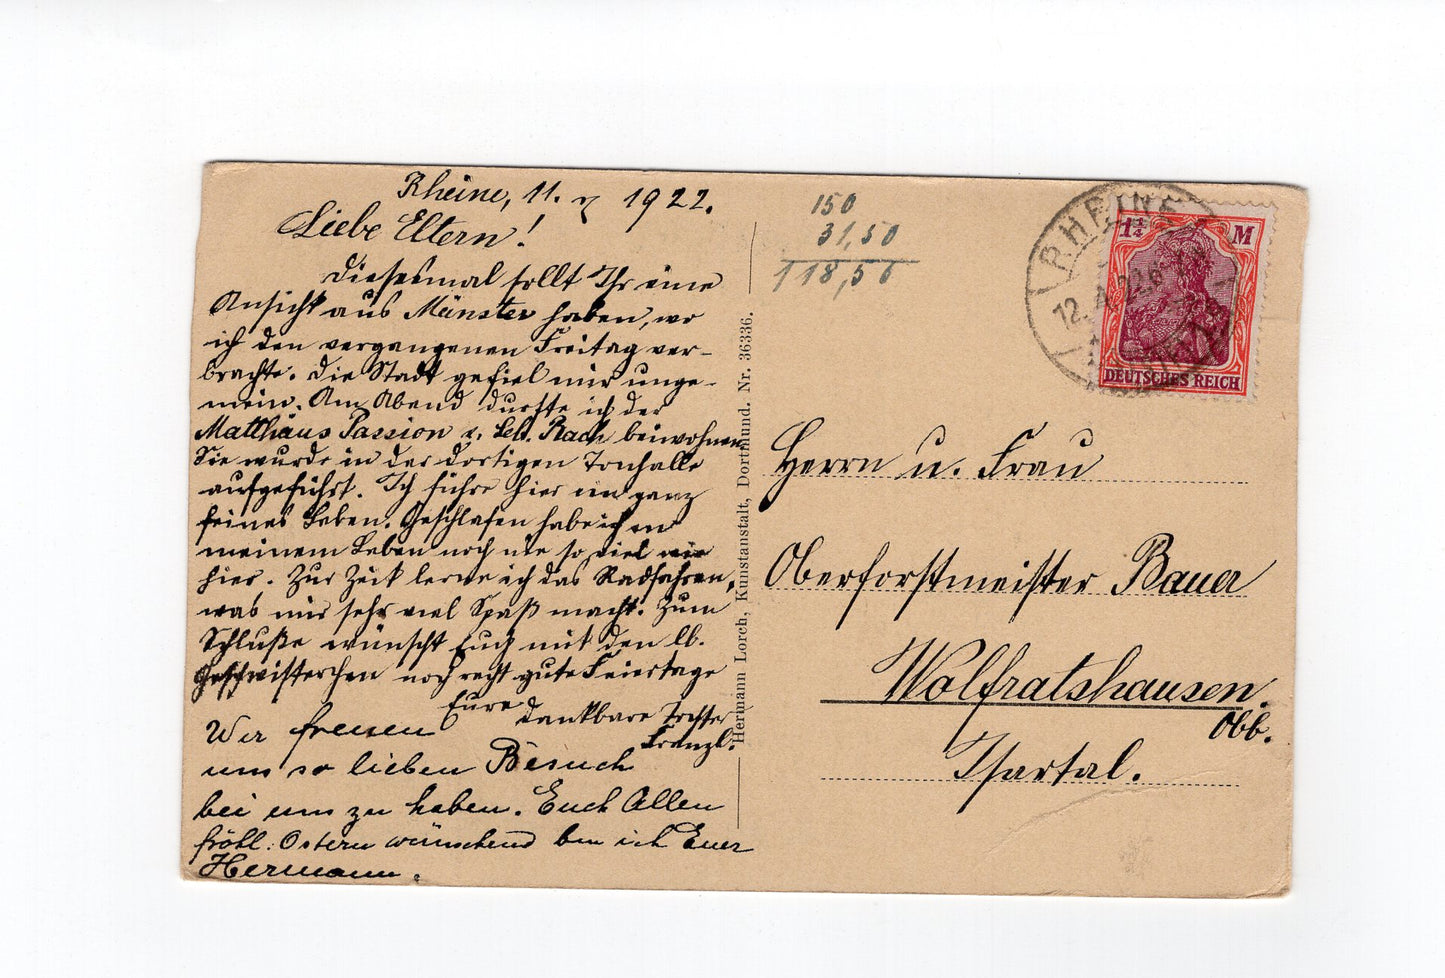 Rheine, 11. 4 1922.
Liebe Eltern!
Diesesmal sollt Ihr eine
Ansicht aus Münster haben, wo
ich den vergangenen Freitag ver-
brachte. Die Stadt gefiel mir unge-
mein. Am Abend durfte ich der
Matthäus Passion v. Seb. Bach beiwohnen
Sie wurde in der dortigen Tonhalle
aufgeführt. Ich führe hier ein ganz
feines Leben. Geschlafen habe ich in
meinem Leben noch nie so viel wie
hier. Zur Zeit lerne ich das Radfahren,
was mir sehr viel Spaß macht. Zum
Schluße wünscht Euch mit den lb.
Geschwisterchen noch recht gute Feiertage
Eure dankbare Tochter
Franzl.
Wir freuen
uns so lieben Besuch
bei uns zu haben. Euch Allen
fröhl. Ostern wünschend bin ich Euer
Hermann.
Hermann Lorch, Kunstanstalt, Dortmund. Nr. 36336.
150
31,50
118,50
RHEINE
12. 4. 22. 6
1¼ M
DEUTSCHES REICH
Herrn u. Frau
Oberforstmeister Bauer
Wolfratshausen.
Obb.
Isartal.